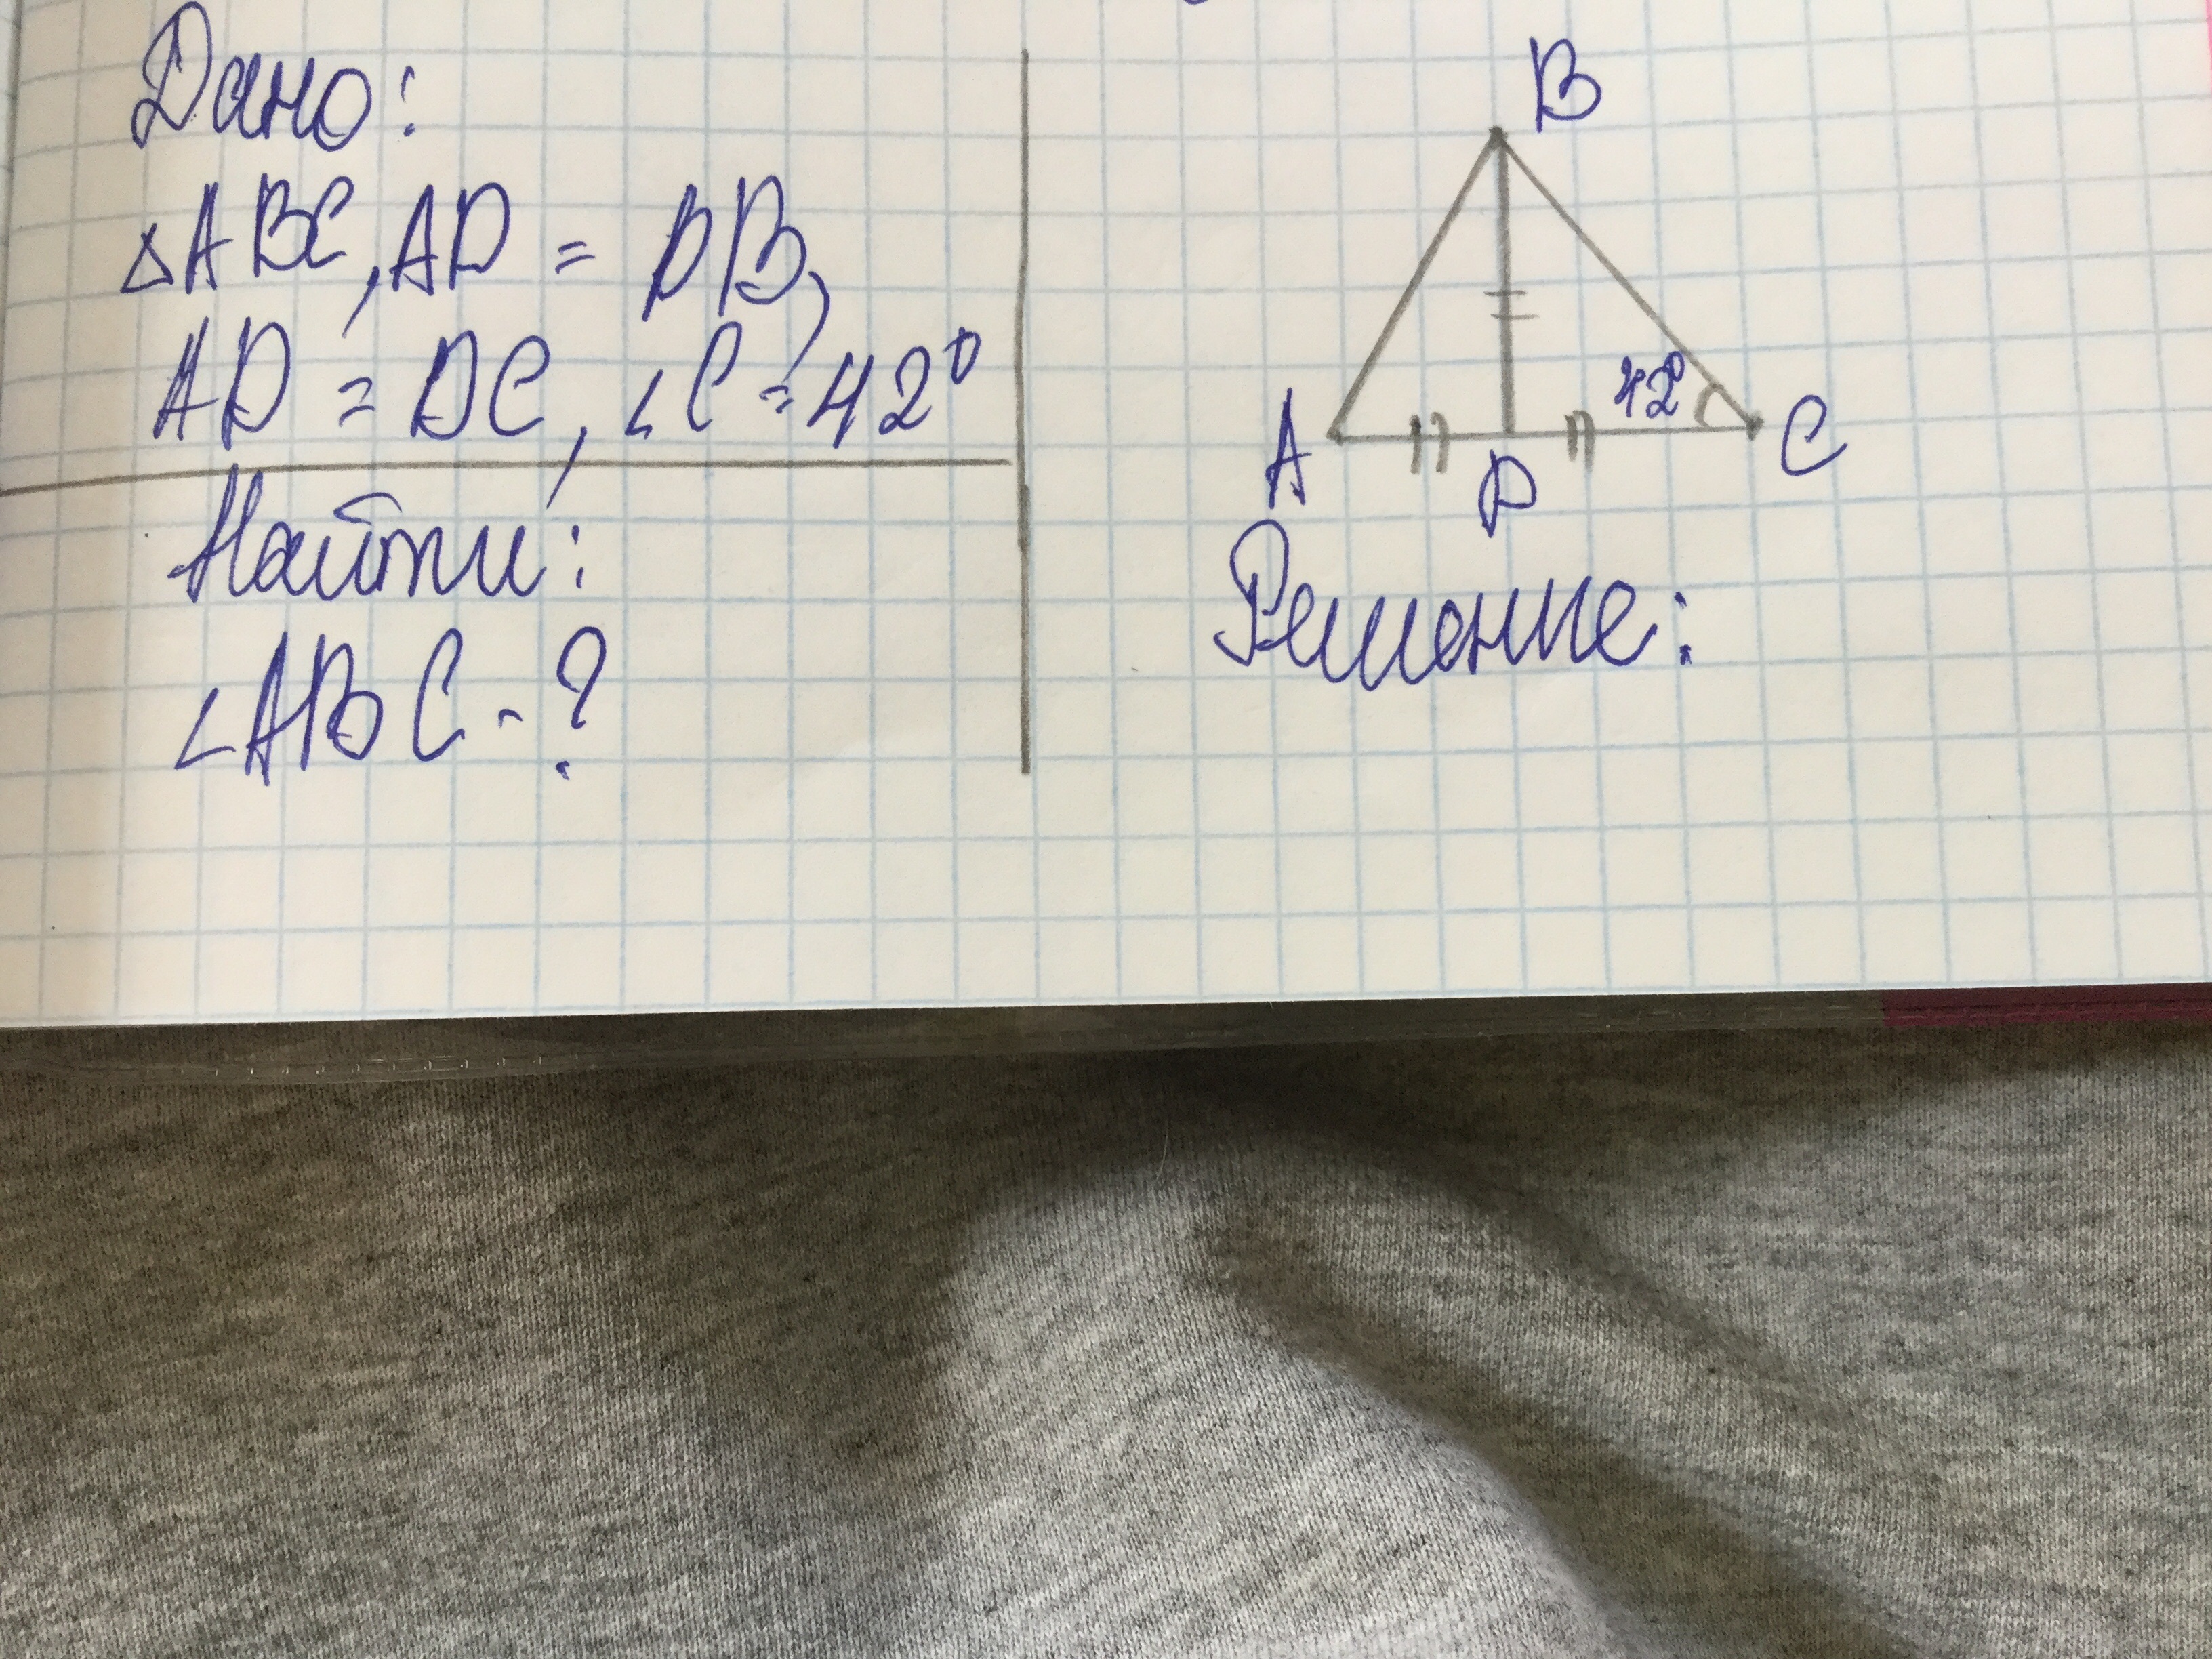 Дано:
△ABC, AD = DB,
AD = DC, ∠C = 42°
Найти:
∠ABC - ?
B
42°
A
D
C
Решение: